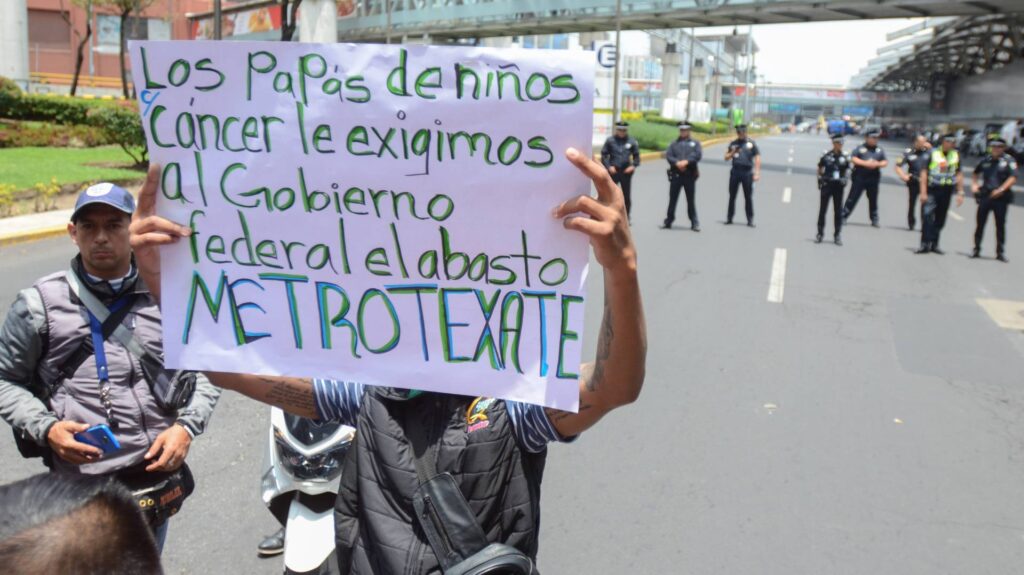 Los Papás de niños
c/ Cáncer le exigimos
al Gobierno
federal el abasto
METROTEXATE
E
5